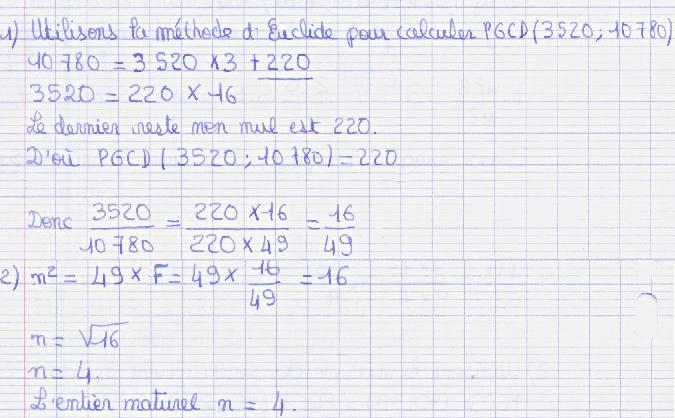 1) Utilisons la méthode d'Euclide pour calculer PGCD(3520; 10780)
10 780 = 3 520 × 3 + 220
3520 = 220 × 16
Le dernier reste non nul est 220.
D'où PGCD(3520; 10780) = 220
Donc 3520/10780 = 220 × 16/220 × 49 = 16/49
2) n² = 49 × F = 49 × 16/49 = 16
n = √16
n = 4.
L'entier naturel n = 4.